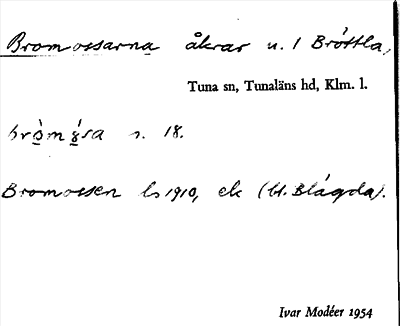 Bromossarna åkrar u. 1 Bröttla,
Tuna sn, Tunaläns hd, Klm. l.
s. 18.
Bromossen ls 1910, ek (bl. Blågda).
Ivar Modéer 1954